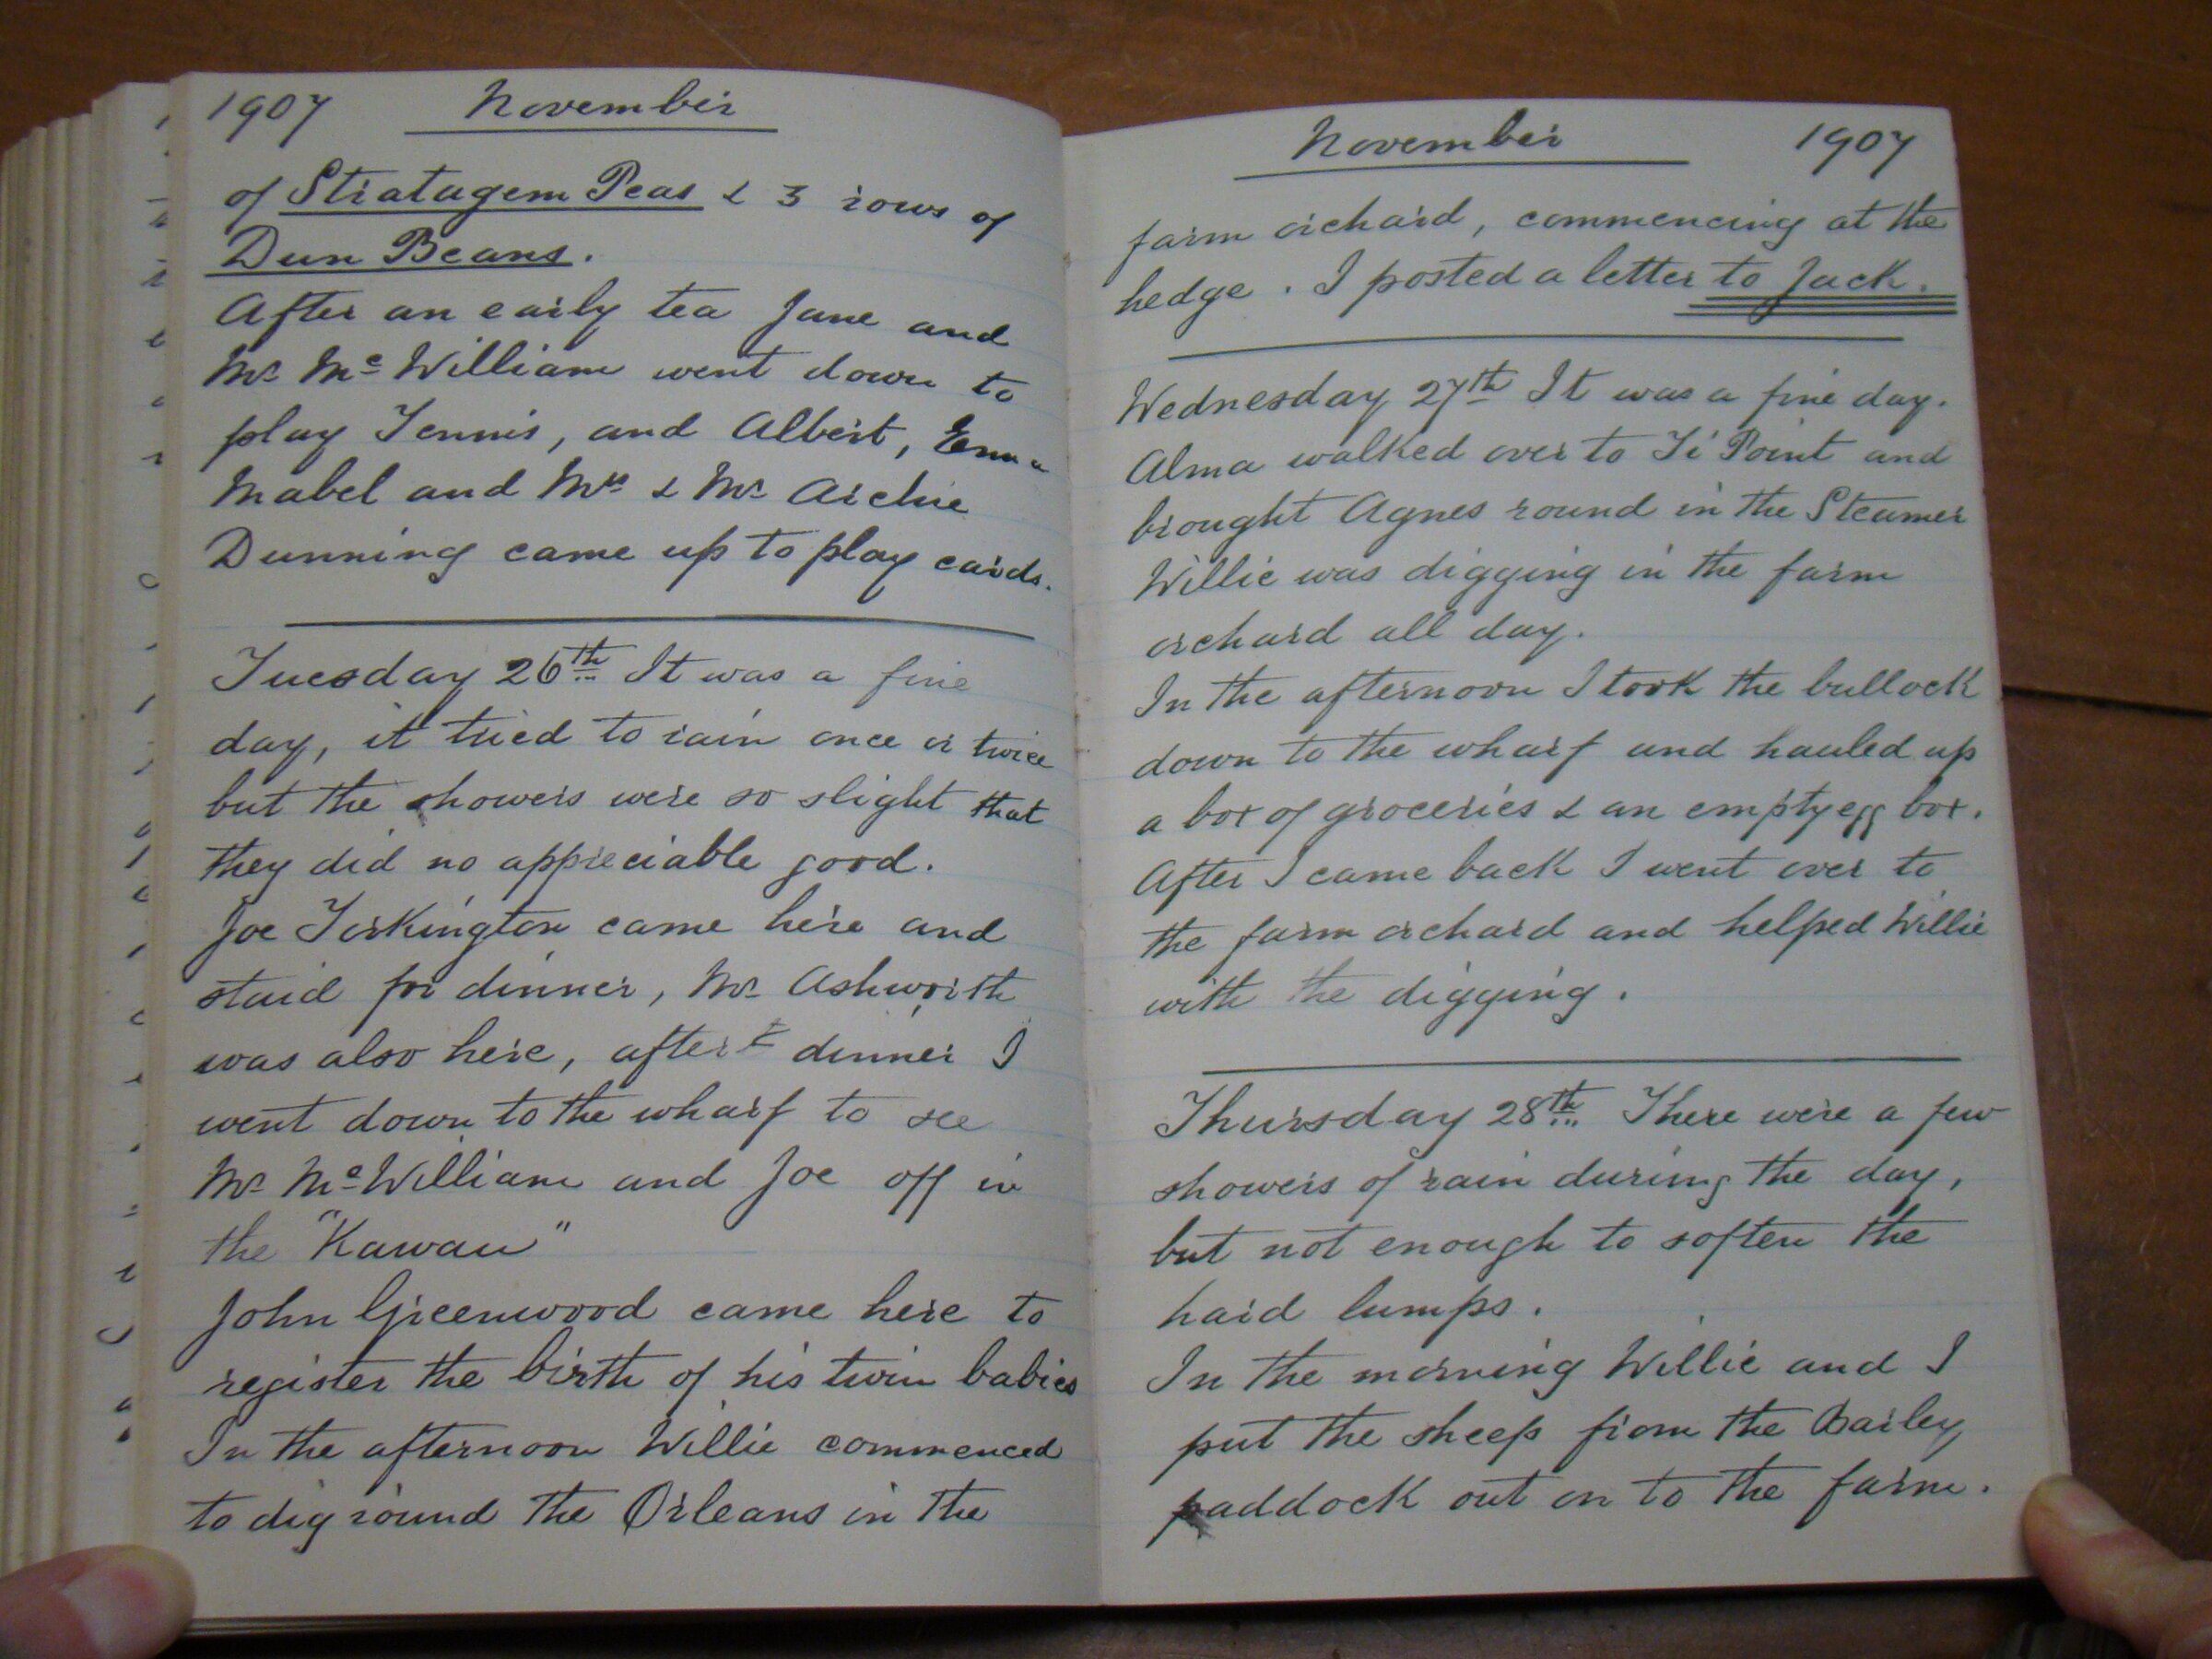 1907 November
of Stratagem Peas & 3 rows of
Dun Beans.
After an early tea Jane and
Mr McWilliam went down to
play Tennis, and Albert, Emma
Mabel and Mrs & Mr Archie
Dunning came up to play cards.
Tuesday 26th It was a fine
day, it tried to rain once or twice
but the showers were so slight that
they did no appreciable good.
Joe Torkington came here and
staid for dinner, Mr Ashworth
was also here, after dinner I
went down to the wharf to see
Mr McWilliam and Joe off in
the "Kawau"
John Greenwood came here to
register the birth of his twin babies
In the afternoon Willie commenced
to dig round the Orleans in the
November 1907
farm orchard, commencing at the
hedge. I posted a letter to Jack.
Wednesday 27th It was a fine day.
Alma walked over to Ti Point and
brought Agnes round in the Steamer
Willie was digging in the farm
orchard all day.
In the afternoon I took the bullock
down to the wharf and hauled up
a box of groceries & an empty egg box.
After I came back I went over to
the farm orchard and helped Willie
with the digging.
Thursday 28th There were a few
showers of rain during the day,
but not enough to soften the
hard lumps.
In the morning Willie and I
put the sheep from the Barley
paddock out on to the farm.